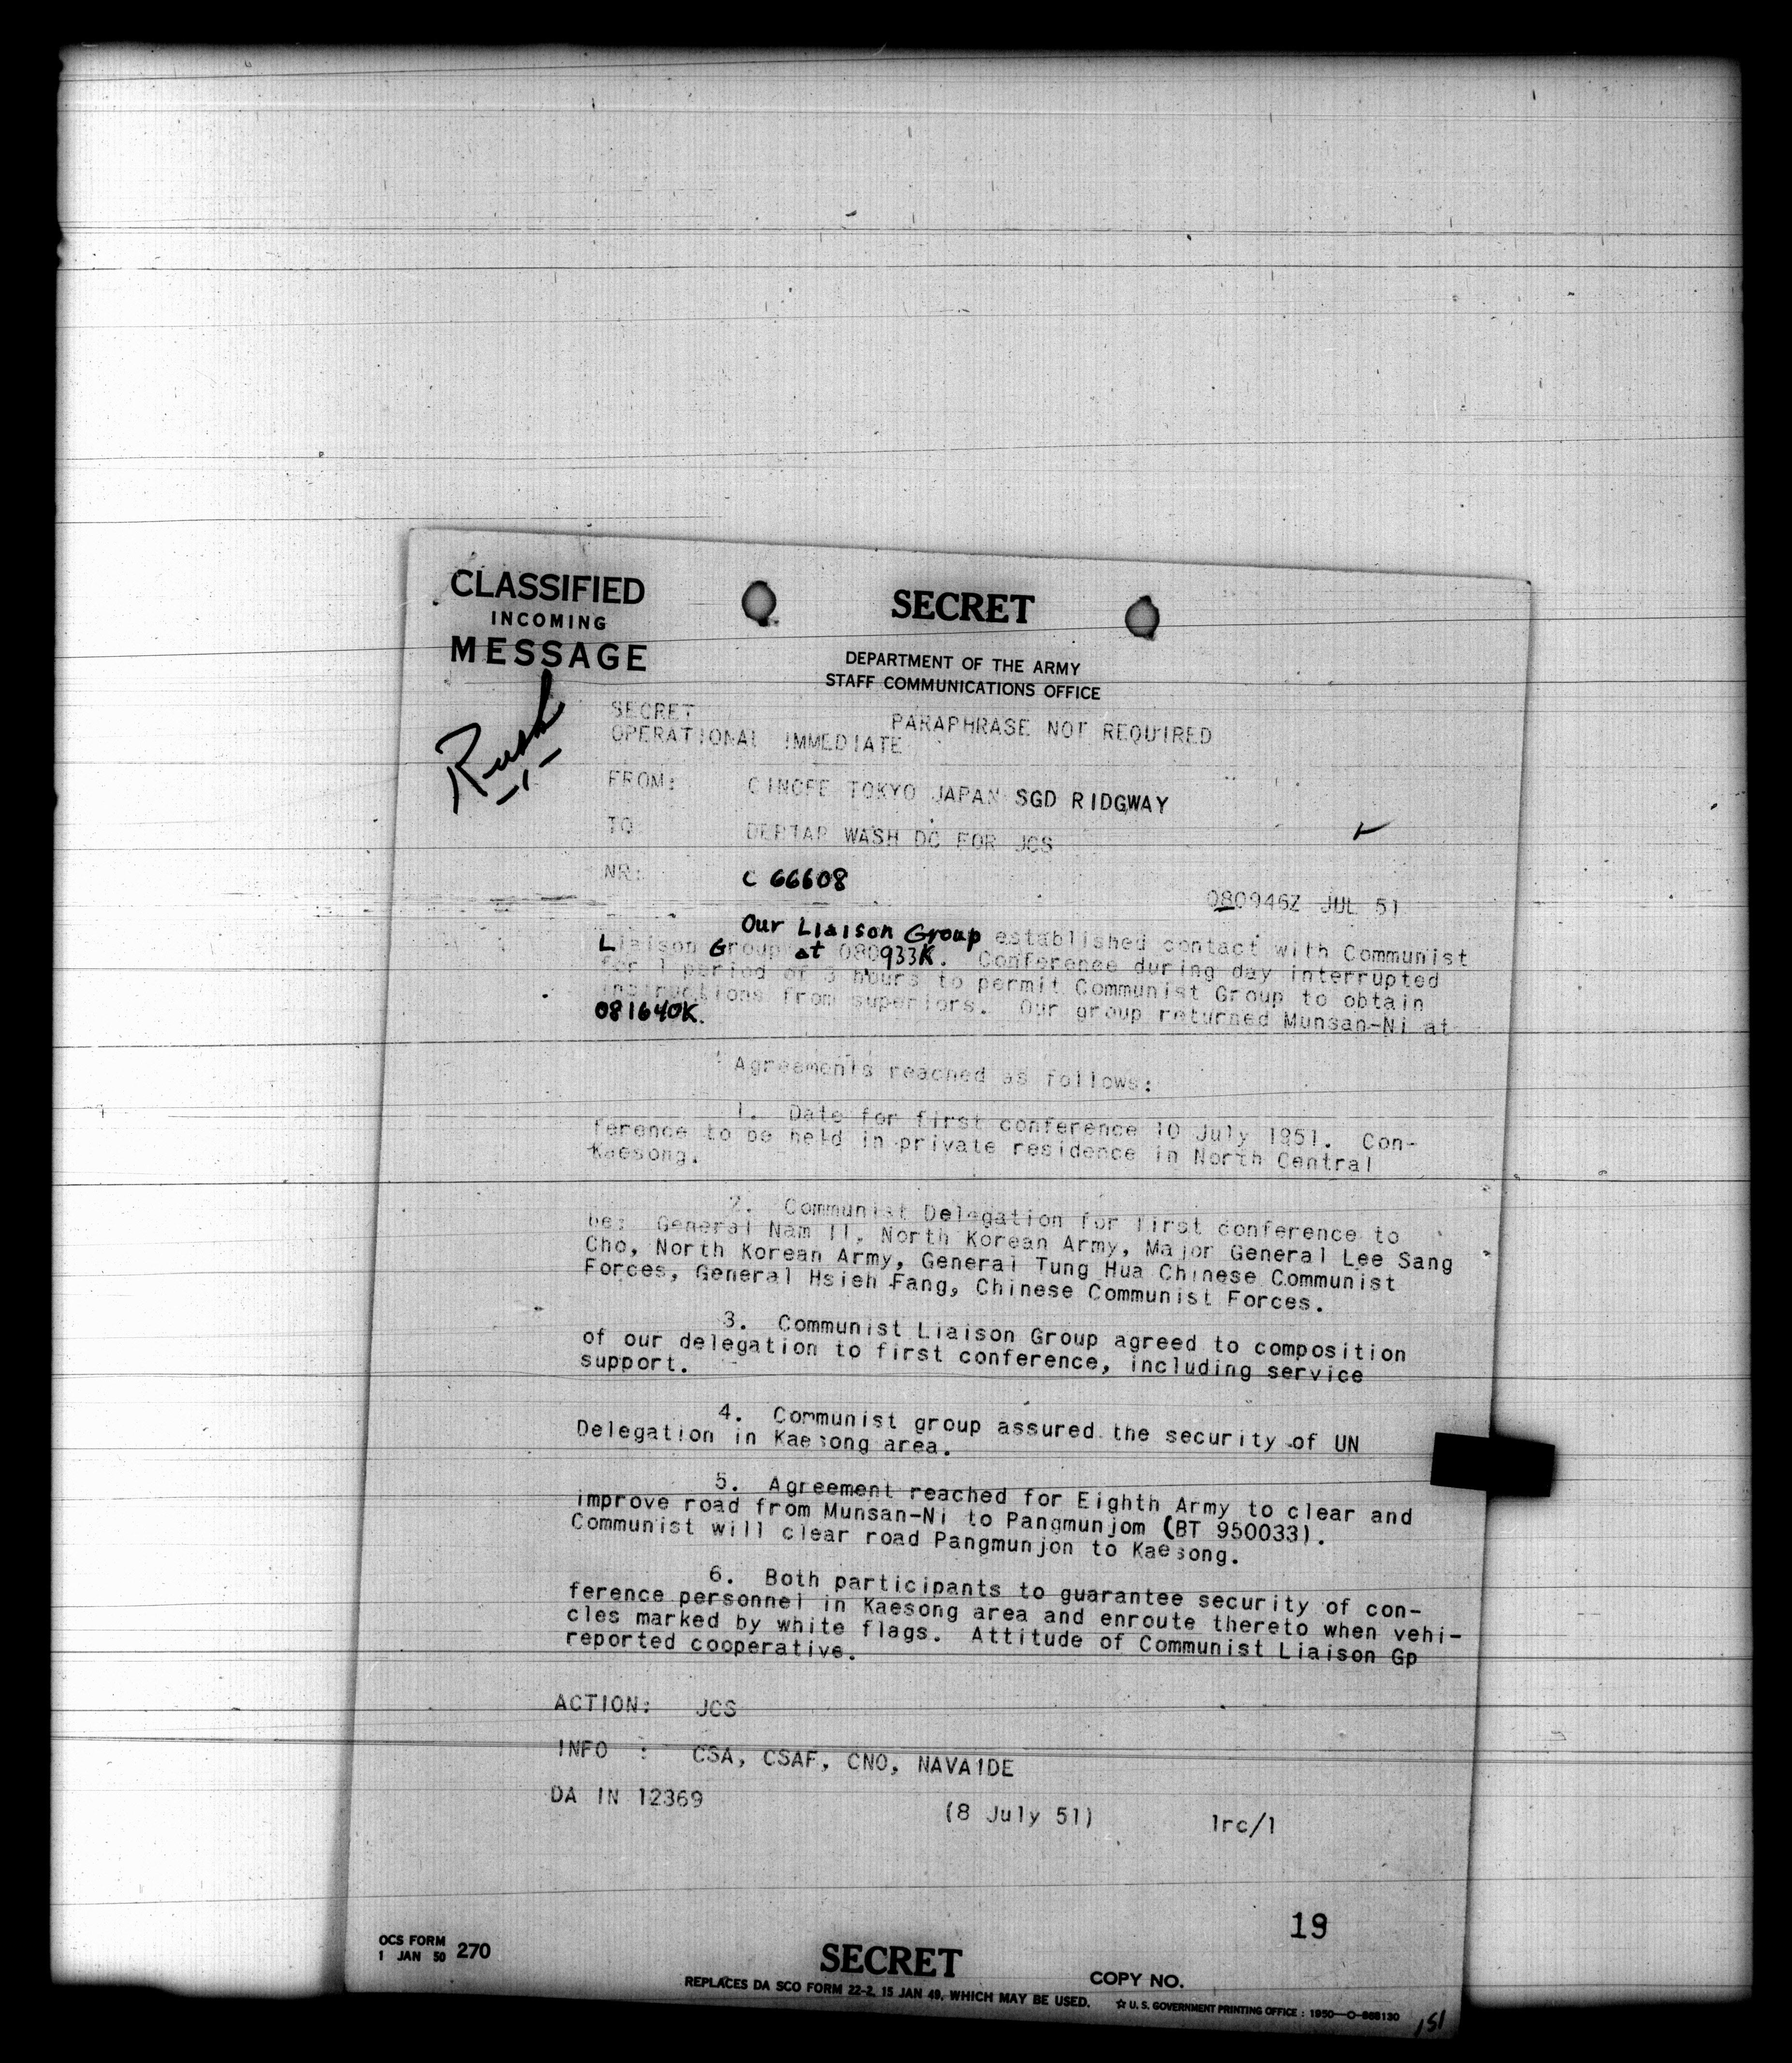 CLASSIFIED
INCOMING
MESSAGE
SECRET
DEPARTMENT OF THE ARMY
STAFF COMMUNICATIONS OFFICE
Rush
SECRET PARAPHRASE NOT REQUIRED
OPERATIONAL IMMEDIATE
FROM: CINCFE TOKYO JAPAN SGD RIDGWAY
TO DEPTAR WASH DC FOR JCS
NR: C 66608
080946Z JUL 51
Our Liaison Group established contact with Communist
Liaison Group at 080933K. Conference during day interrupted
for 1 period of 3 hours to permit Communist Group to obtain
instructions from superiors. Our group returned Munsan-Ni at
081640K.
Agreements reached as follows:
1. Date for first conference 10 July 1951. Con-
ference to be held in private residence in North Central
Kaesong.
2. Communist Delegation for first conference to
be: General Nam Il, North Korean Army, Major General Lee Sang
Cho, North Korean Army, General Tung Hua Chinese Communist
Forces, General Hsieh Fang, Chinese Communist Forces.
3. Communist Liaison Group agreed to composition
of our delegation to first conference, including service
support.
4. Communist group assured the security of UN
Delegation in Kaesong area.
5. Agreement reached for Eighth Army to clear and
improve road from Munsan-Ni to Pangmunjom (BT 950033).
Communist will clear road Pangmunjon to Kaesong.
6. Both participants to guarantee security of con-
ference personnel in Kaesong area and enroute thereto when vehi-
cles marked by white flags. Attitude of Communist Liaison Gp
reported cooperative.
ACTION: JCS
INFO : CSA, CSAF, CNO, NAVAIDE
DA IN 12369 (8 July 51) lrc/1
19
OCS FORM
1 JAN 50 270
SECRET
COPY NO.
REPLACES DA SCO FORM 22-2, 15 JAN 49, WHICH MAY BE USED.
☆ U. S. GOVERNMENT PRINTING OFFICE : 1950—O-868130
151